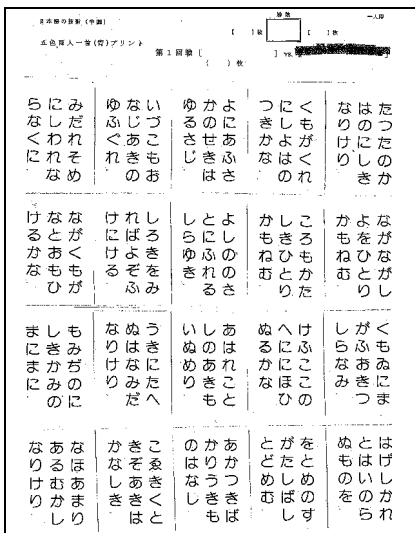 五色百人一首(青)プリント
勝敗
( )枚
( )枚
第1回戦[ ] vs.
( )枚
たつたのか
はのにしき
なりけり
くもがくれ
にしよはの
つきかな
よにあふさ
かのせきは
ゆるさじ
いづこもお
なじあきの
ゆふぐれ
みだれそめ
にしわれな
らなくに
ながながし
よをひとり
かもねむ
ころもかた
しきひとり
かもねむ
よしののさ
とにふれる
しらゆき
しろきをみ
ればよぞふ
けにける
ながくもが
なとおもひ
けるかな
くもゐにま
がふおきつ
しらなみ
けふここの
へににほひ
ぬるかな
あはれこと
しのあきも
いぬめり
うきにたへ
ぬはなみだ
なりけり
もみぢのに
しきかみの
まにまに
はげしかれ
とはいのら
ぬものを
をとめのす
がたしばし
とどめむ
あかつきば
かりうきも
のはなし
こゑきくと
きぞあきは
かなしき
なほあまり
あるむかし
なりけり